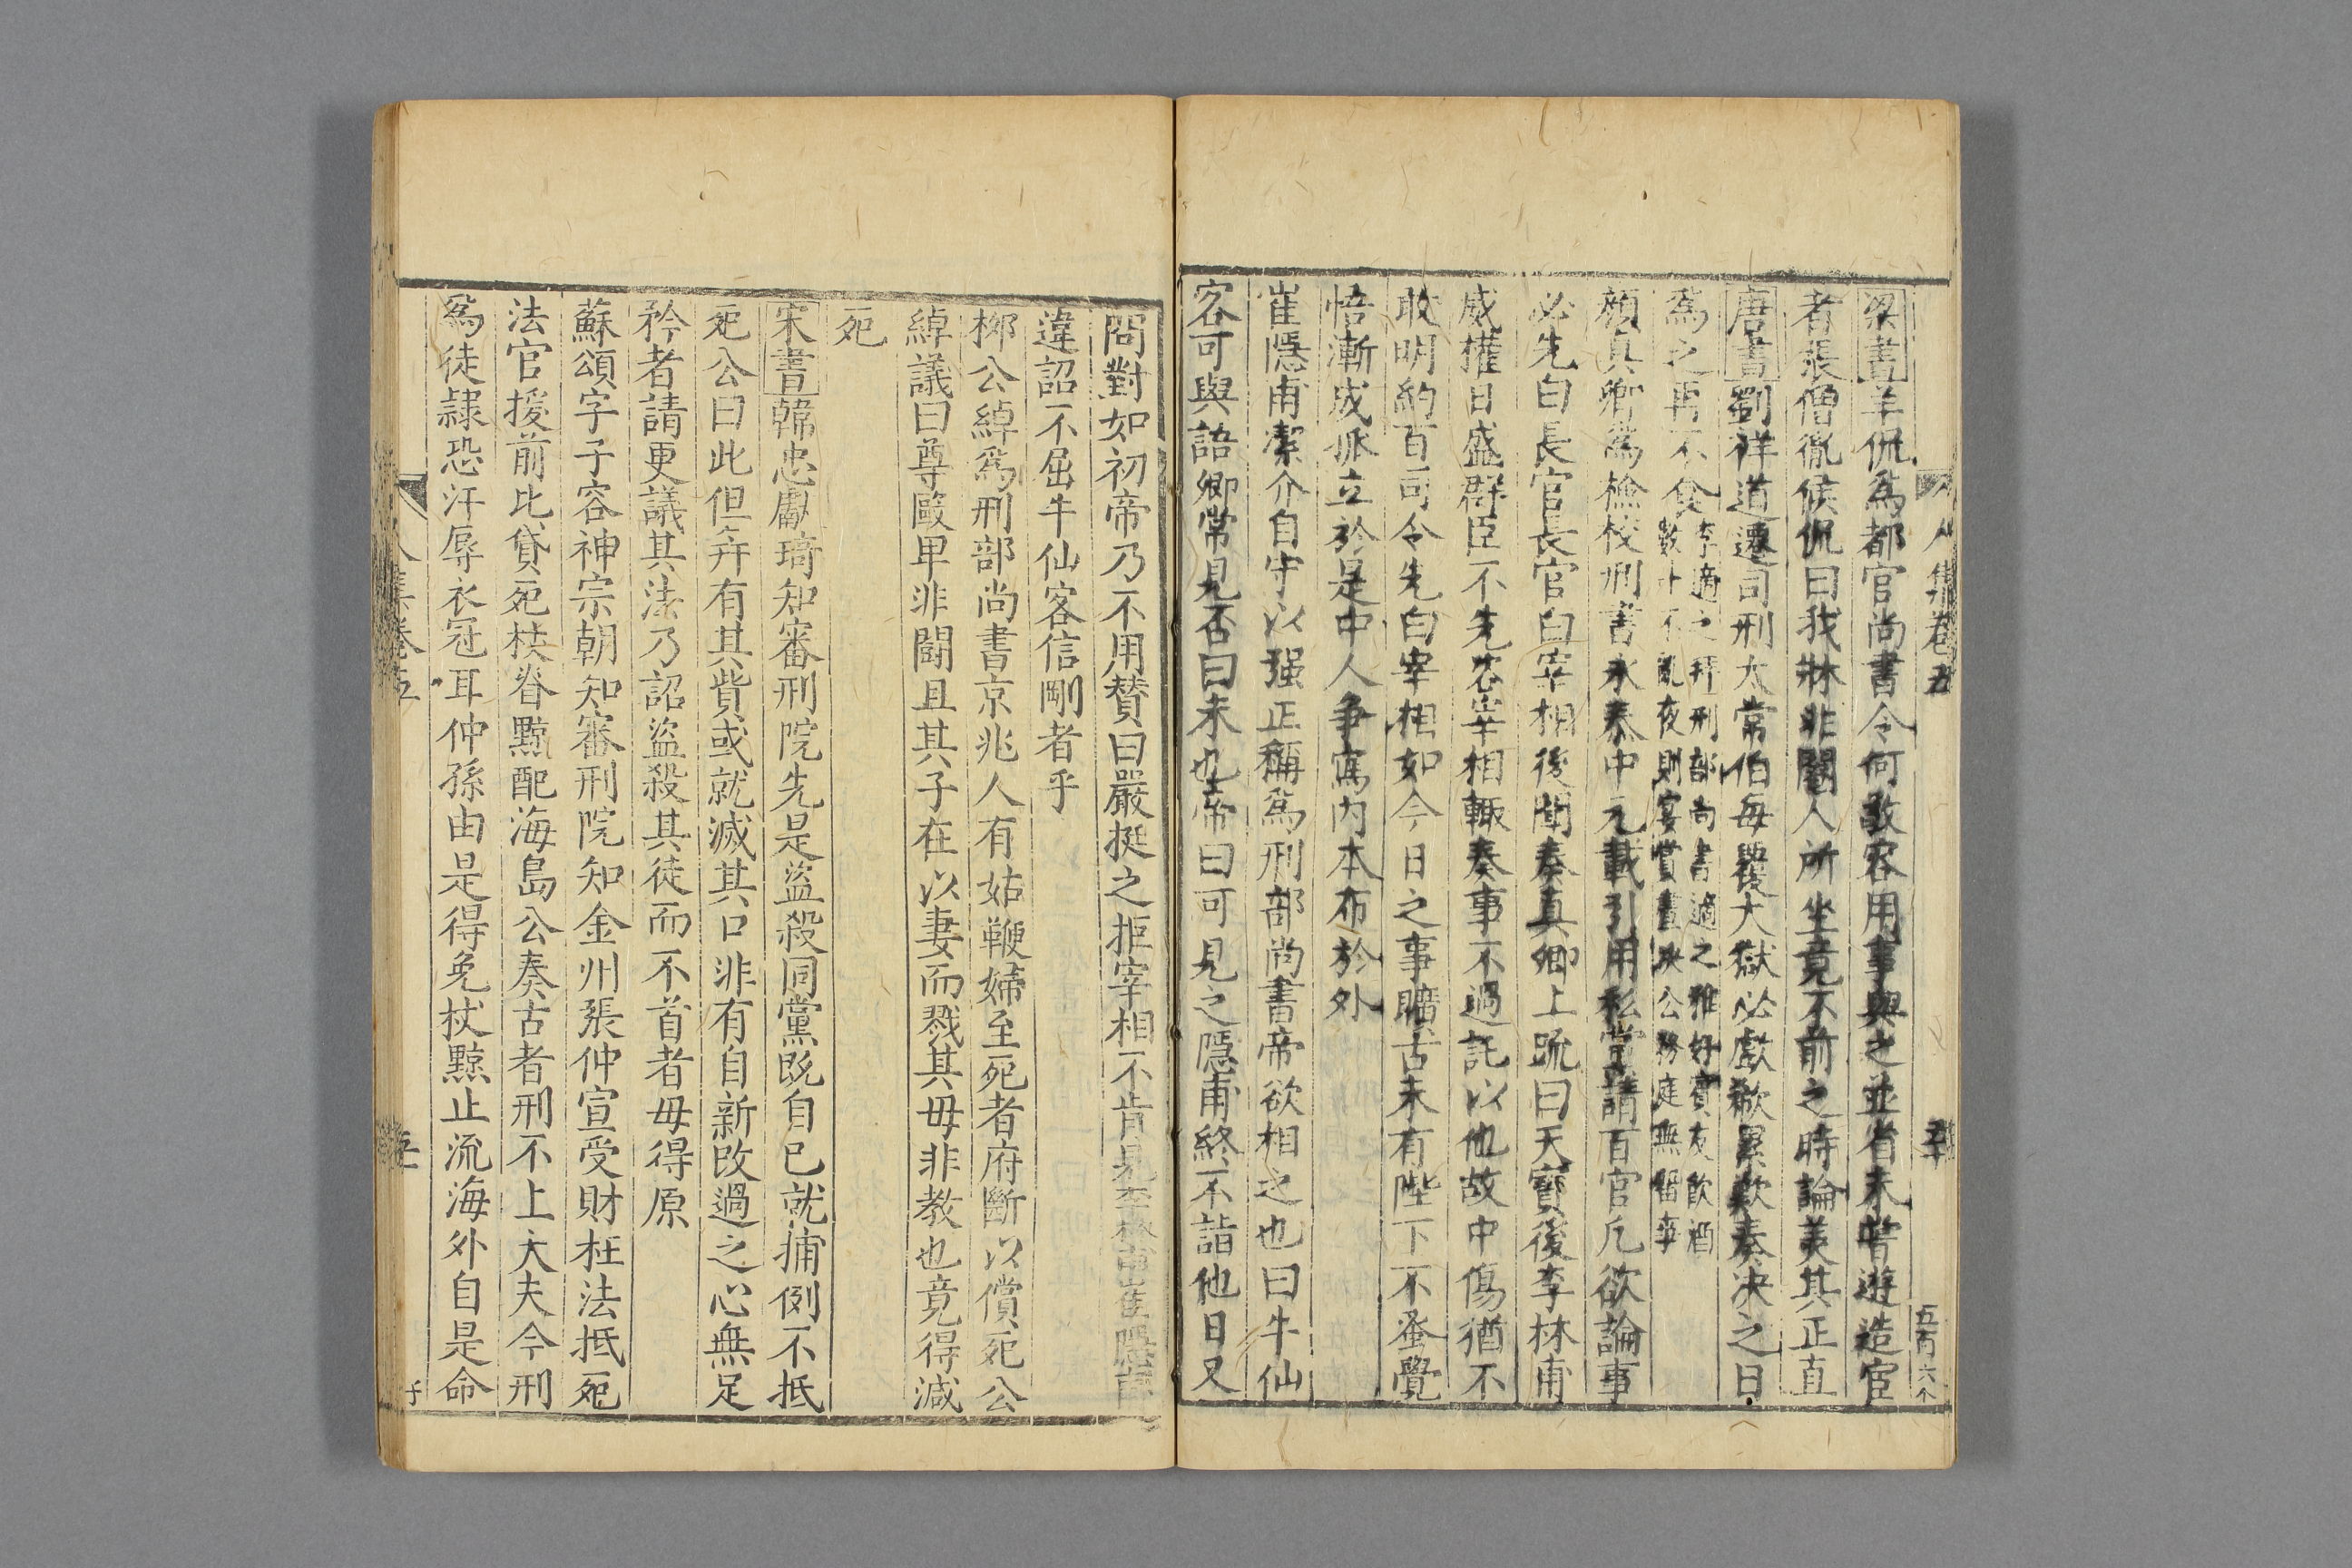 人集卷五
五百六个
梁書羊侃爲都官尚書令何敬容用事與之並省未嘗遊造宦
者張僧胤候侃曰我牀非閹人所坐竟不前之時論美其正直
唐書劉祥道遷司刑太常伯每覆大獄必歔欷累歎奏決之日
爲之再不食
李適之拜刑部尚書適之雅好賓友飮酒
數斗不亂夜則宴賞晝決公務庭無留事
顏真卿爲檢校刑書永泰中元載引用私黨請百官凡欲論事
必先白長官長官白宰相後聞奏真卿上疏曰天寶後李林甫
威權日盛群臣不先容宰相輒奏事不過託以他故中傷猶不
敢明約百司令先白宰相如今日之事曠古未有陛下不蚤覺
悟漸成孤立於是中人争寫内本布於外
崔隱甫潔介自守以强正稱爲刑部尚書帝欲相之也曰牛仙
客可與語卿常見否曰未也帝曰可見之隱甫終不詣他日又
問對如初帝乃不用賛曰嚴挺之拒宰相不肯見李林甫崔隱甫
違詔不屈牛仙客信剛者乎
柳公綽爲刑部尚書京兆人有姑鞭婦至死者府斷以償死公
綽議曰尊毆卑非鬪且其子在以妻而戮其母非教也竟得減
死
宋書韓忠獻琦知審刑院先是盜殺同黨旣自已就捕例不抵
死公曰此但幷有其貲或就滅其口非有自新改過之心無足
矜者請更議其法乃詔盜殺其徒而不首者毋得原
蘇頌字子容神宗朝知審刑院知金州張仲宣受財枉法抵死
法官援前比貸死杖脊黥配海島公奏古者刑不上大夫今刑
爲徒隷恐汙辱衣冠耳仲孫由是得免杖黥止流海外自是命
人集卷五